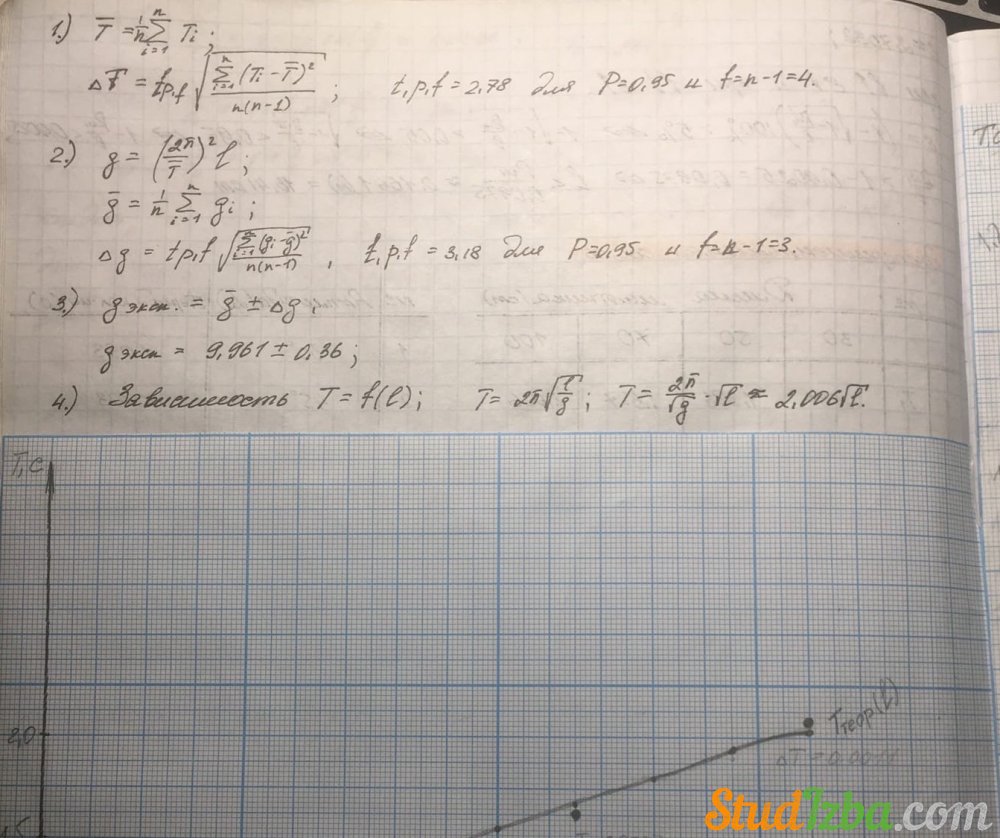 1.) T̅ = 1/n ∑ᵢ₌₁ⁿ Tᵢ ;
ΔT̅ = t_{p,f} √(∑ᵢ₌₁ⁿ (Tᵢ - T̅)² / n(n-1)) ; t,p,f = 2,78 для P=0,95 и f=n-1=4.
2.) g = (2π/T̅)² l ;
g̅ = 1/n ∑ᵢ₌₁ⁿ gᵢ ;
Δg = t_{p,f} √(∑ᵢ₌₁ⁿ (gᵢ - g̅)² / n(n-1)) , t,p,f = 3,18 для P=0,95 и f=n-1=3.
3.) g эксп. = g̅ ± Δg,
g эксп = 9,961 ± 0,36 ;
4.) Зависимость T = f(l) ; T = 2π√(l/g) ; T = 2π/√g · √l ≈ 2,006√l.
T, c
2,0
Tтеор(l)
StudIzba.com